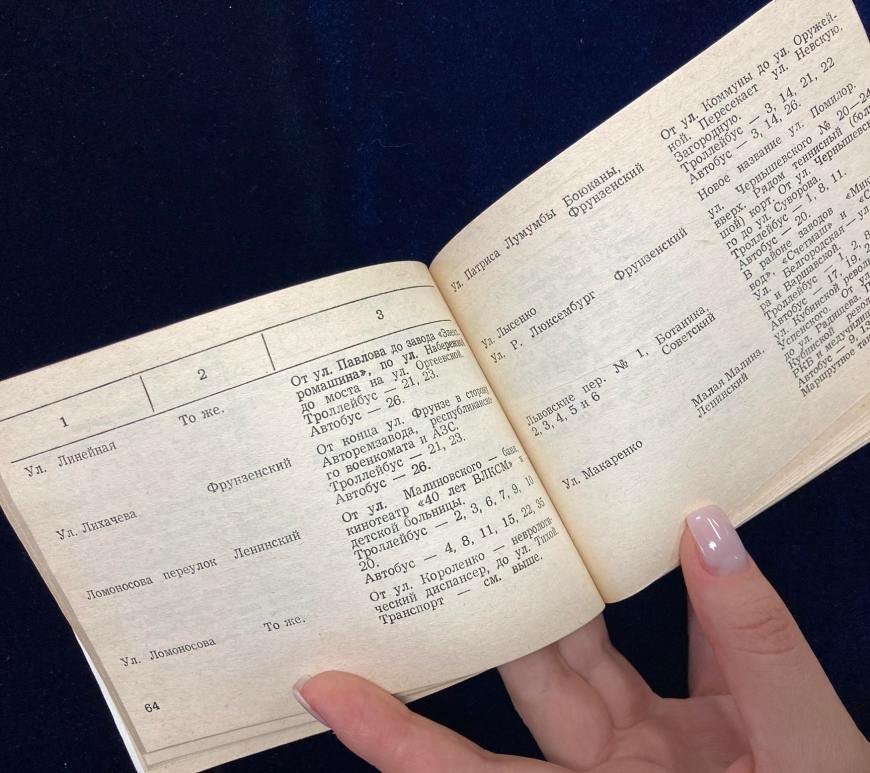 1
2
3
Ул. Линейная
То же.
От ул. Павлова до завода «Элект
ромашина», по ул. Набережной
до моста на ул. Оргеевской.
Троллейбус — 21, 23.
Автобус — 26.
Ул. Лихачева
Фрунзенский
От конца ул. Фрунзе в сторону
Авторемзавода, республиканско
го военкомата и АЗС.
Троллейбус — 21, 23.
Автобус — 26.
Ломоносова переулок Ленинский
От ул. Малиновского — баня,
кинотеатр «40 лет ВЛКСМ» и
детской больницы.
Троллейбус — 2, 3, 6, 7, 9, 10
20.
Автобус — 4, 8, 11, 15, 22, 35
Ул. Ломоносова
То же.
От ул. Короленко — неврологи-
ческий диспансер, до ул. Тихой.
Транспорт — см. выше.
64
Ул. Патриса Лумумбы Боюканы,
Фрунзенский
От ул. Коммуны до ул. Оружей-
ной. Пересекает ул. Невскую,
Загородную.
Троллейбус — 3, 14, 21, 22
Автобус — 3, 14, 26.
Ул. Лысенко
Новое название ул. Помилор.
Ул. Р. Люксембург Фрунзенский
ул. Чернышевского № 20—24
вверх. Рядом теннисный (боль
шой) корт. От ул. Чернышевско
го до ул. Суворова.
Троллейбус — 1, 8, 11.
Автобус — 20.
Львовские пер. № 1, Ботаника,
2, 3, 4, 5 и 6 Советский
В районе заводов «Мик
вод», «Счетмаш» и «С
Ул. Белгородская — ул
ра и Варшавской.
Троллейбус — 1, 2, 8
Автобус — 17, 19, 2
Ул. Макаренко
Малая Малина,
Ленинский
ул. Кубинской револ
Успенского. От ул.
до ул. Радищева.
Кубинской револ
РКБ и медучилищ
Автобус — 9, 13
Маршрутное так